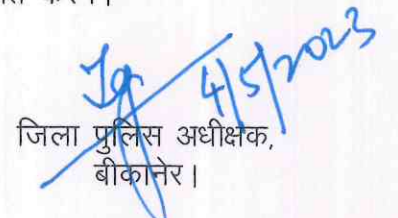 4/5/2023
जिला पुलिस अधीक्षक,
बीकानेर।